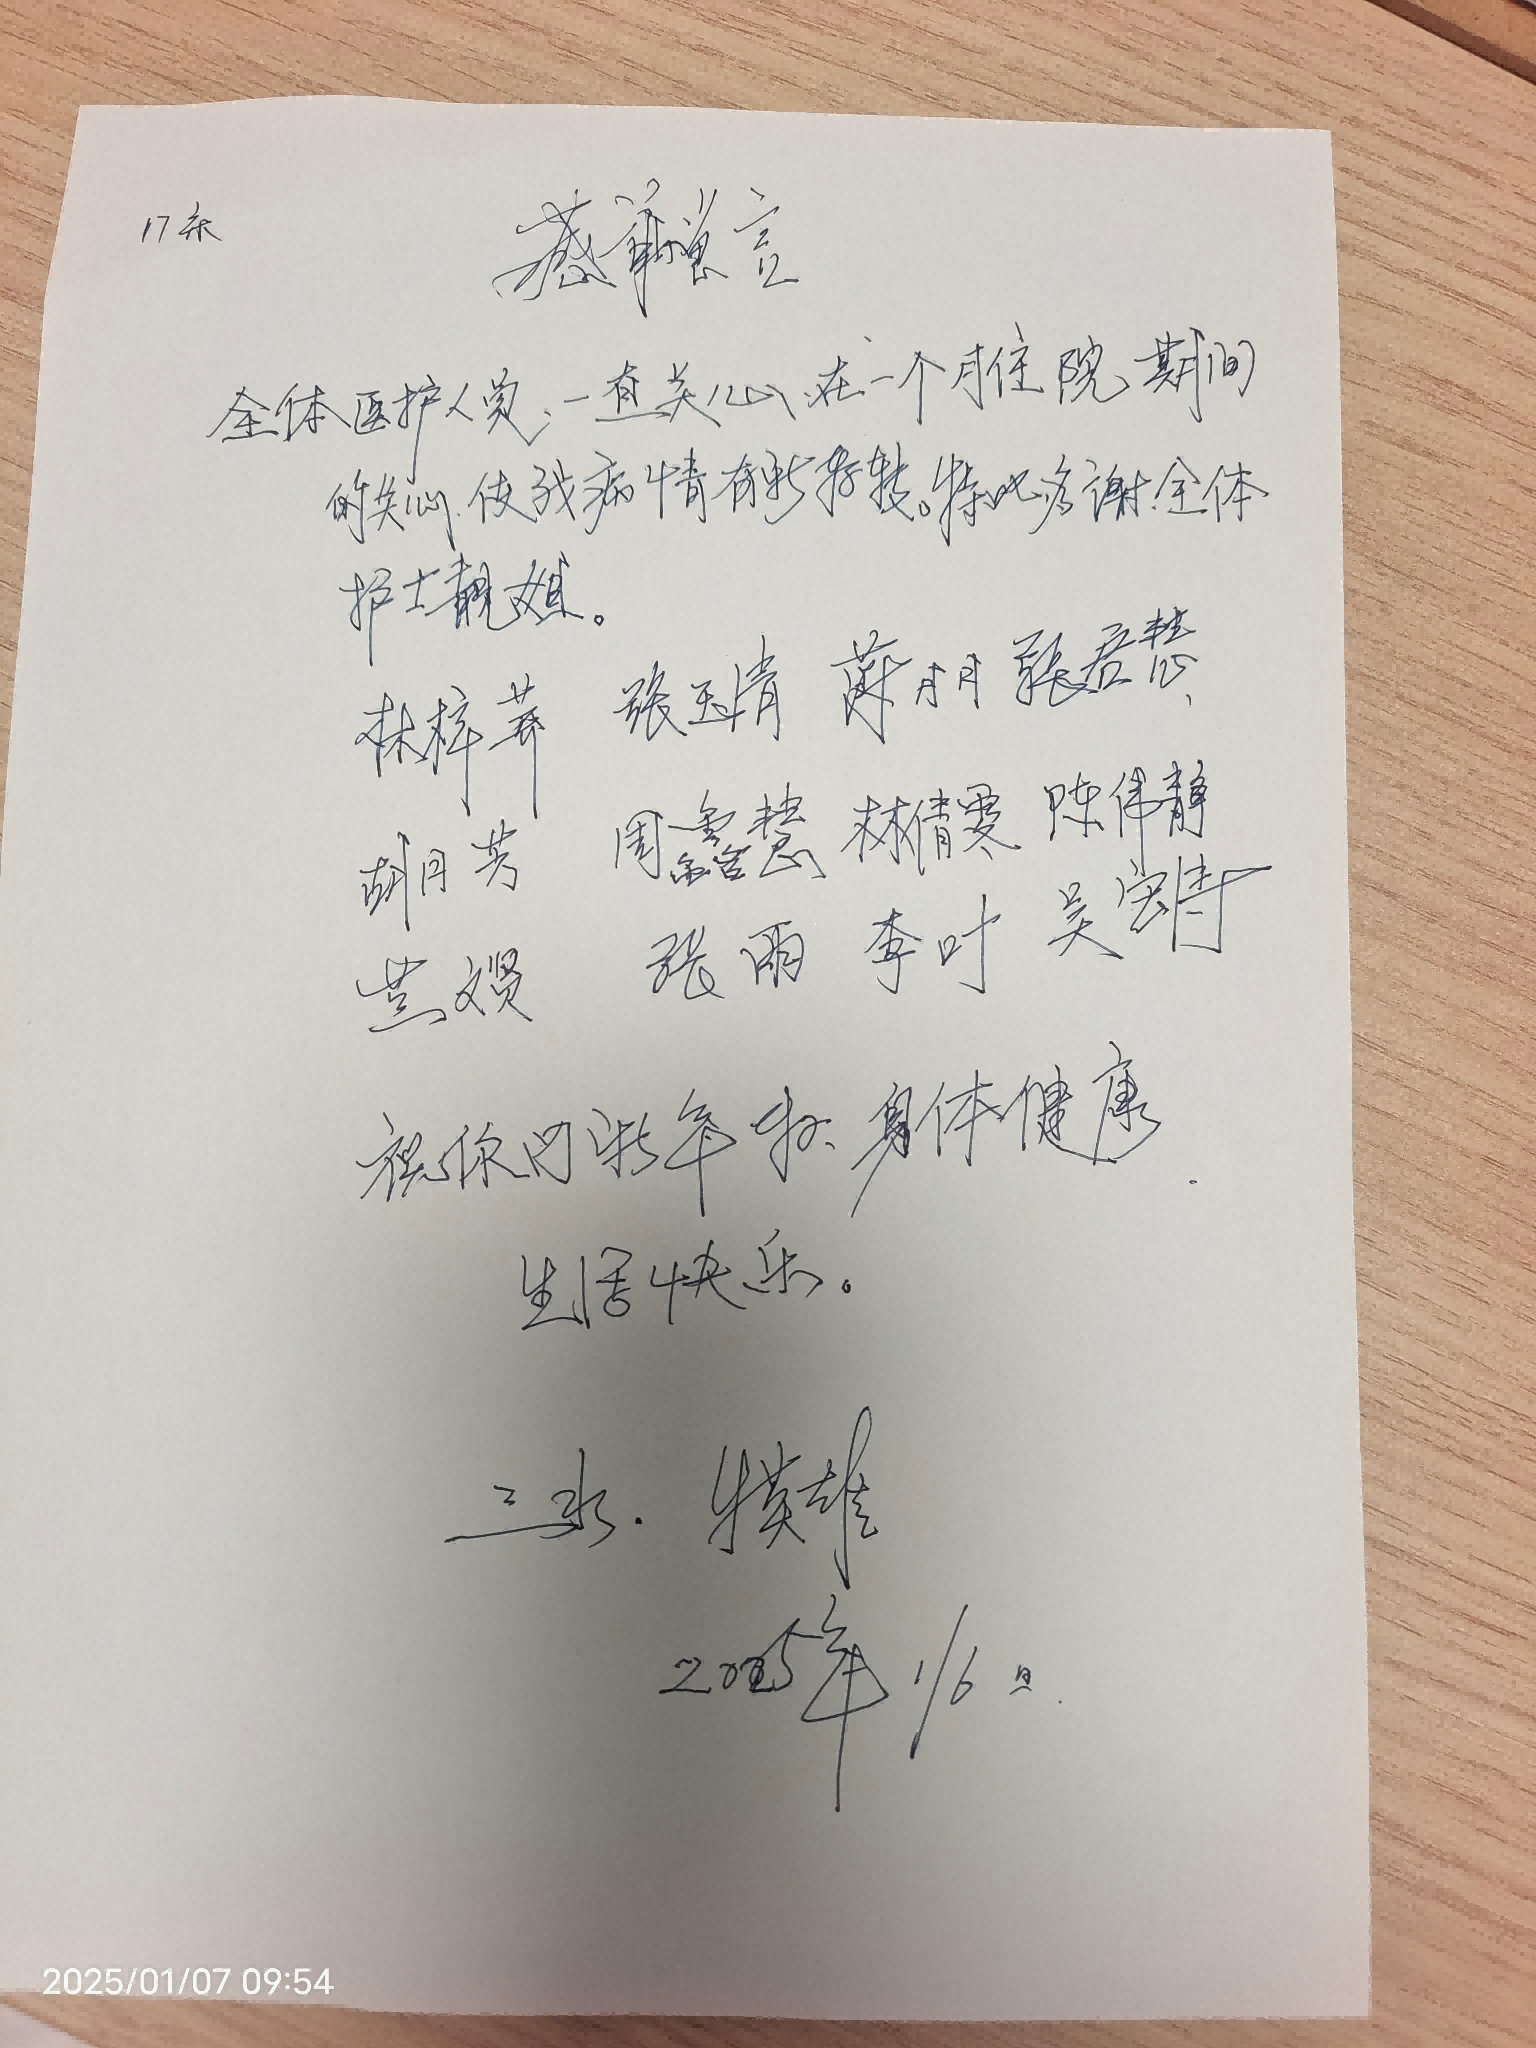 17床
感谢留言
全体医护人员,一直关心,在一个月住院期间
的关心,使我病情有所好转。特此多谢全体
护士靓姐。
林梓莽 张玉倩 薛月月 张君慧、
胡月芳 周鑫慧 林倩雯 陈伟静
黄嫒 张雨 李叶 吴宝倩
祝你们新年好、身体健康.
生活快乐。
三水.
2025年1/6日.
2025/01/07 09:54